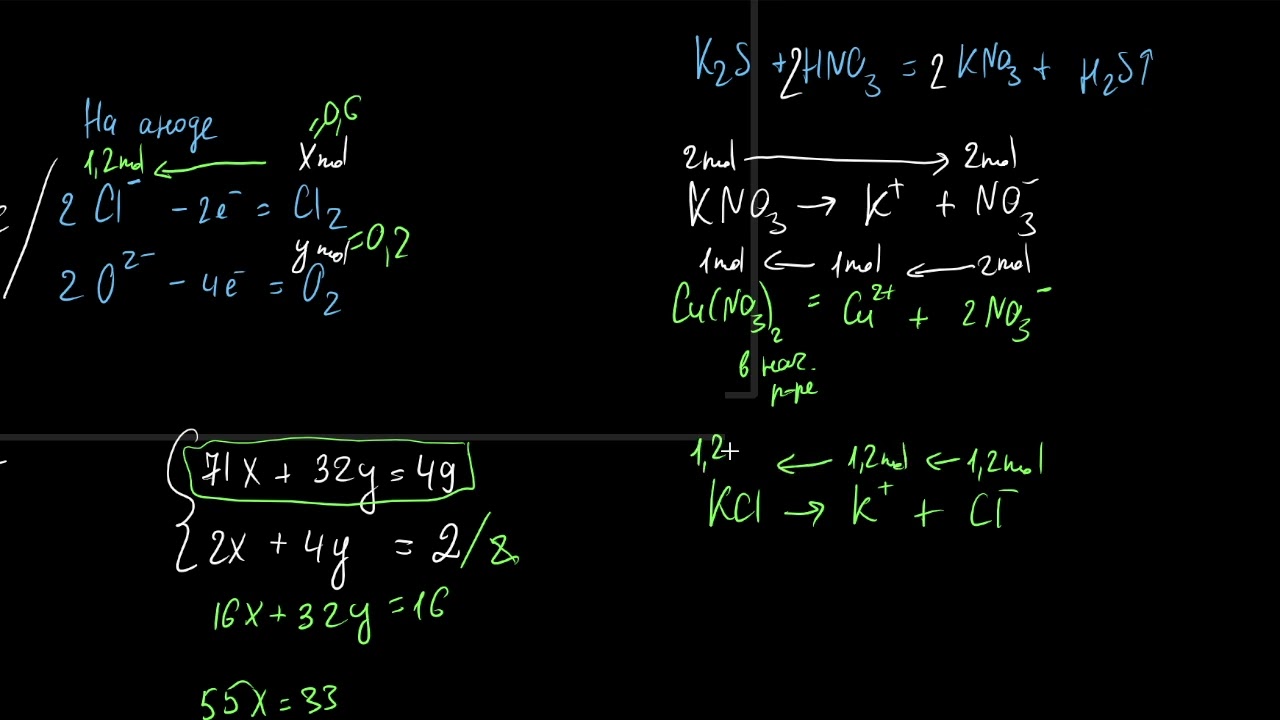 На аноде
=0,6
1,2mol ← Xmol
2Cl⁻ - 2e⁻ = Cl₂
y mol =0,2
2O²⁻ - 4e⁻ = O₂
{ 71x + 32y = 49
2x + 4y = 2 /8
16x + 32y = 16
55x = 33
K₂S + 2HNO₃ = 2KNO₃ + H₂S↑
2mol → 2mol
KNO₃ → K⁺ + NO₃⁻
1mol ← 1mol ← 2mol
Cu(NO₃)₂ = Cu²⁺ + 2NO₃⁻
в нач.
р-ре
1,2 ← 1,2mol ← 1,2mol
KCl → K⁺ + Cl⁻